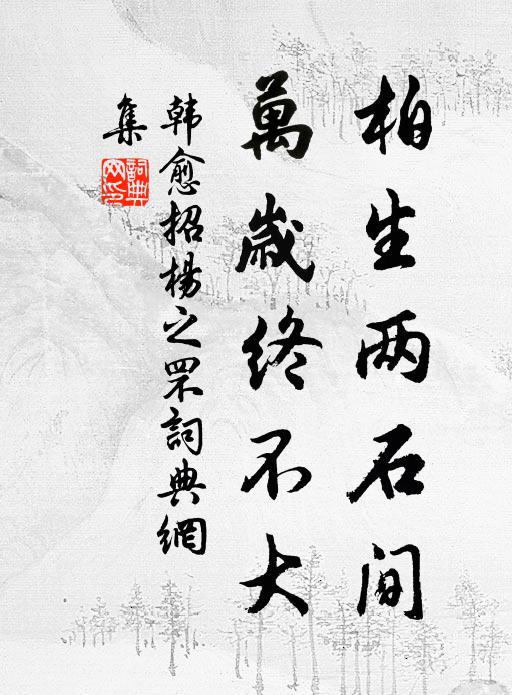 柏生两石间
萬歲终不大
韩愈招楊之罘詞典網
集
詞典网印